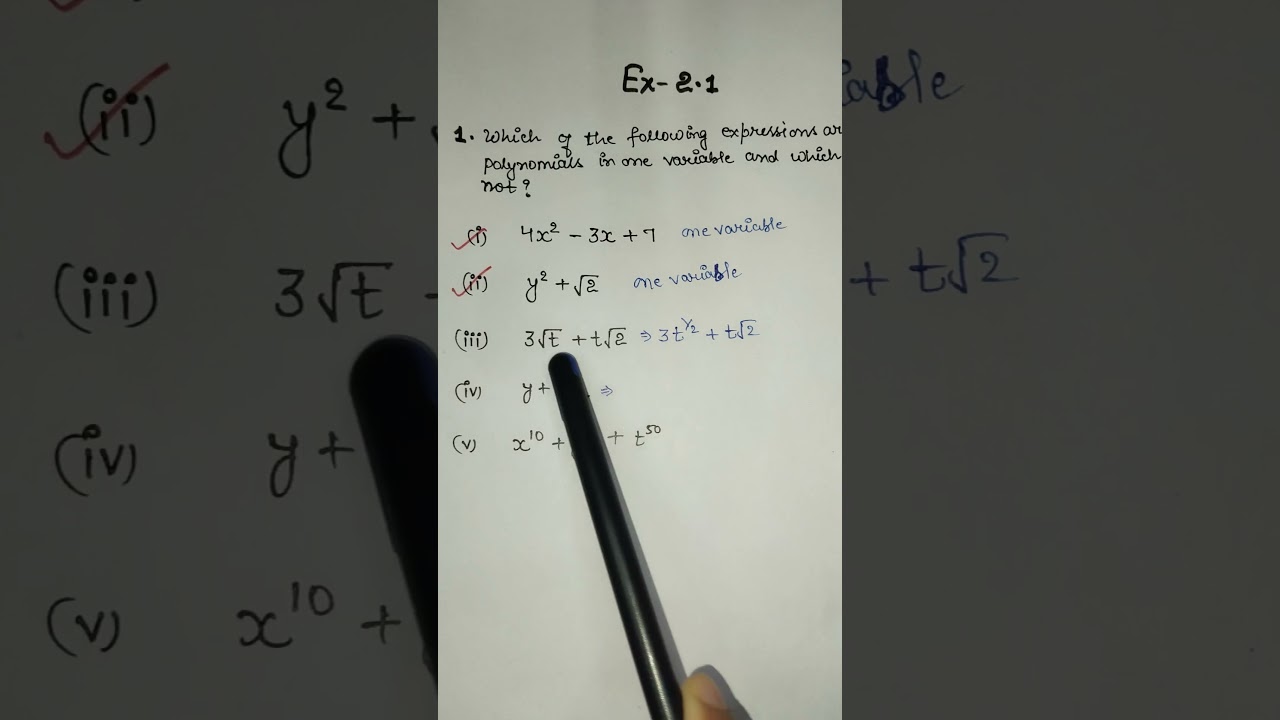 Ex-2.1
1. Which of the following expressions ar
polynomials in one variable and which
not?
(i) 4x² - 3x + 7 one variable
(ii) y² + √2 one variable
(iii) 3√t + t√2 ⇒ 3t^1/2 + t√2
(iv) y + ⇒
(v) x¹⁰ + + t⁵⁰